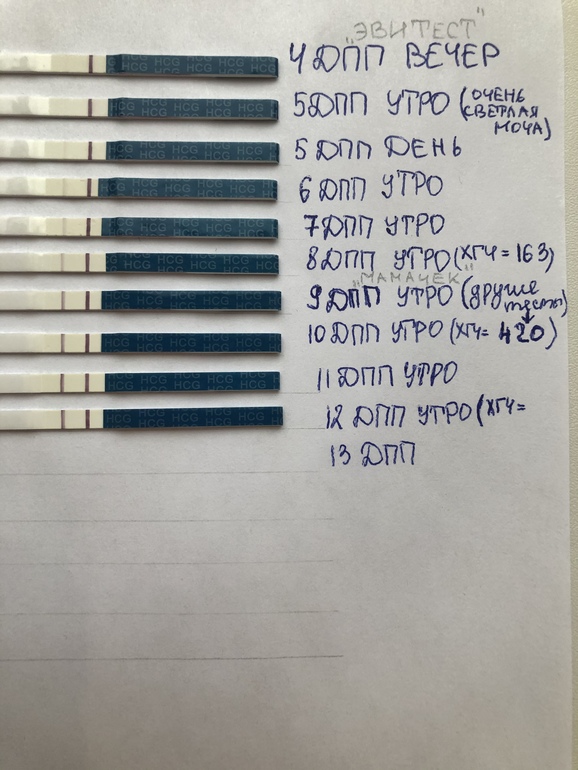 "ЭВИТЕСТ"
4 ДПП ВЕЧЕР
5 ДПП УТРО (ОЧЕНЬ
СВЕТЛАЯ
МОЧА)
5 ДПП ДЕНЬ
6 ДПП УТРО
7 ДПП УТРО
8 ДПП УТРО (ХГЧ = 163)
"МАМАЧЕК"
9 ДПП УТРО (другие
тесты)
10 ДПП УТРО (ХГЧ= 420)
11 ДПП УТРО
12 ДПП УТРО (ХГЧ=
13 ДПП
HCG HCG HCG HCG
HCG HCG HCG HCG
HCG HCG HCG HCG
HCG HCG HCG HCG
HCG HCG HCG HCG
HCG HCG HCG HCG
HCG HCG HCG HCG
HCG HCG HCG HCG
HCG HCG HCG HCG
HCG HCG HCG HCG